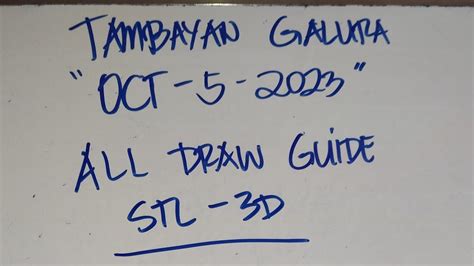 TAMBAYAN GALURA
"OCT-5-2023"
ALL DRAW GUIDE
STL-3D